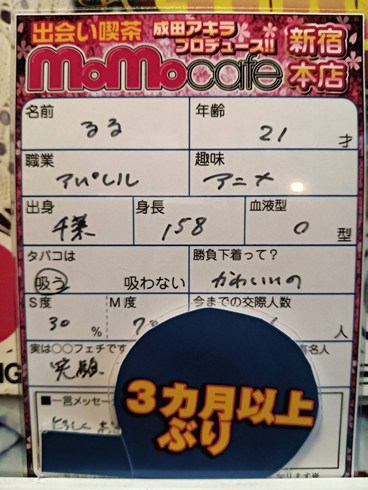 出会い喫茶 成田アキラ
プロデュース!!
MoMocafe 新宿
本店
名前 るる
年齢 21 才
職業 アパレル
趣味 アニメ
出身 千葉
身長 158
血液型 O 型
タバコは 吸う 吸わない
勝負下着って? かわいいの
S度 30 %
M度 7
今までの交際人数 人
実は○○フェチです
笑顔
名人
■一言メッセー
3カ月以上
ぶり